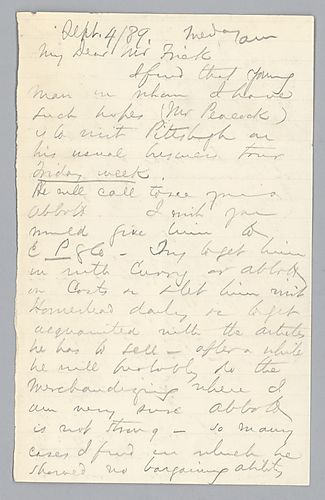 Sept. 4/89. Wedy am
My Dear Mr. Frick
I find that young
man in whom I have
such hopes (Mr Peacock)
is to visit Pittsburgh on
his usual business tour
Friday week.
He will call to see you &
Abbott. I wish you
would give him to
E L & Co — Try to get him
in with Curry or Abbott
on Costs or & let him visit
Homestead daily so to get
acquainted with the articles
he has to sell — after a while
he will probably do the
Merchandizing where I
am very sure Abbott
is not strong — so many
cases I find in which he
showed no bargaining ability